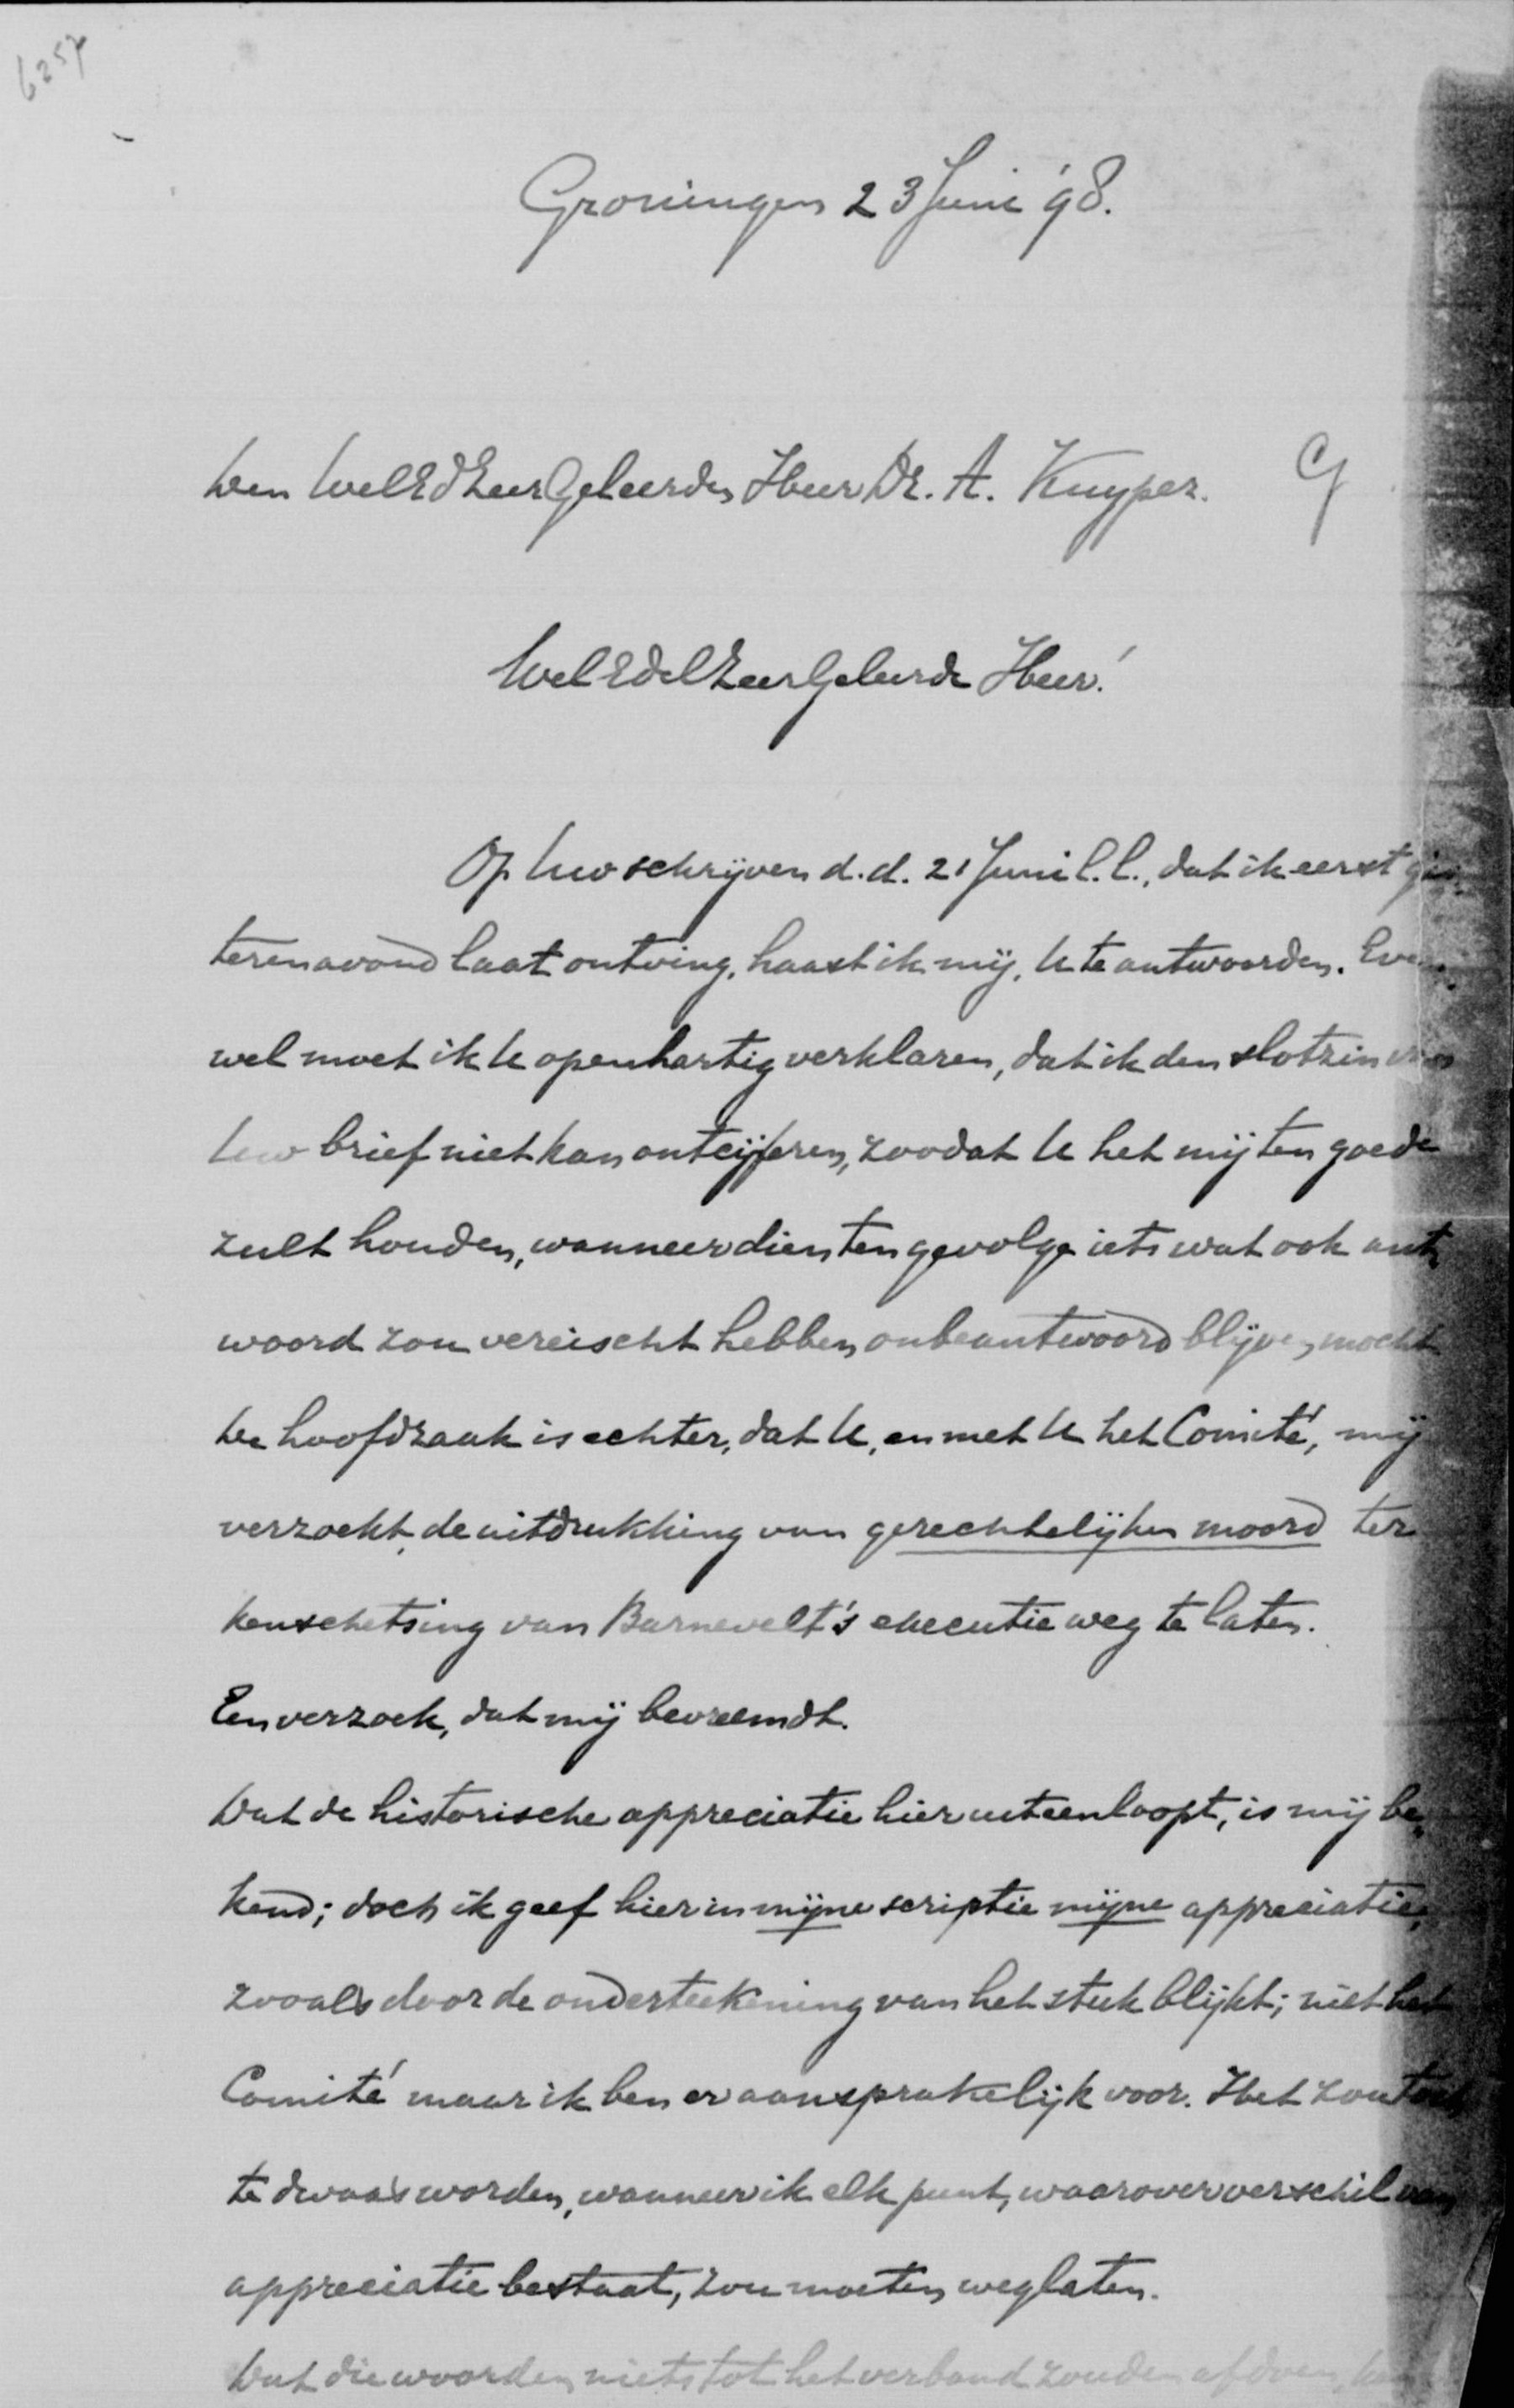 6257
Groningen 23 Juni '98.
Den WelEdZeerGeleerden Heer Dr. A. Kuyper.
WelEdelZeerGeleerde Heer!
Op Uw schrijven d.d. 21 Juni l.l., dat ik eerst gis-
terenavond laat ontving, haast ik mij, U te antwoorden. Even-
wel moet ik U openhartig verklaren, dat ik den slotzin van
Uw brief niet kan ontcijferen, zoodat U het mij ten goede
zult houden, wanneer dientengevolge iets wat ook ant-
woord zou vereischt hebben onbeantwoord blijven mocht
De hoofdzaak is echter, dat U, en met U het Comité, mij
verzoekt, de uitdrukking van gerechtelijken moord ter
kenschetsing van Barnevelt's executie weg te laten.
Een verzoek, dat mij bevreemdt.
Dat de historische appreciatie hier uiteenloopt, is mij be-
kend; doch ik geef hier in mijne scriptie mijne appreciatie,
zooals door de onderteekening van het stuk blijkt; niet het
Comité maar ik ben er aansprakelijk voor. Het zou toch
te dwaas worden, wanneer ik elk punt, waarover verschil van
appreciatie bestaat, zou moeten weglaten.
Dat die woorden niets tot het verband zouden afdoen,